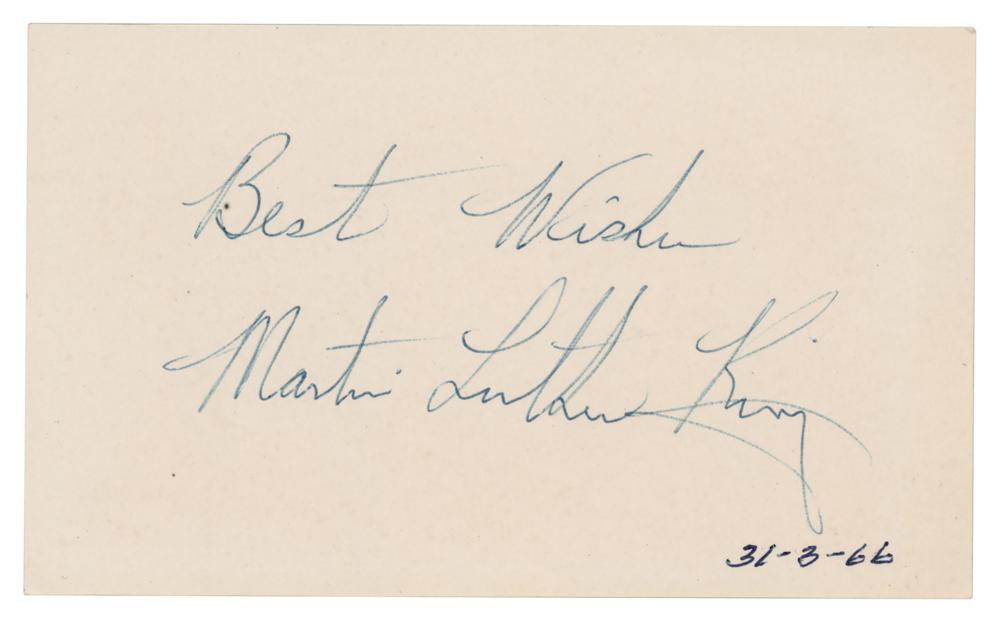 Best Wishes
Martin Luther King
31-3-66